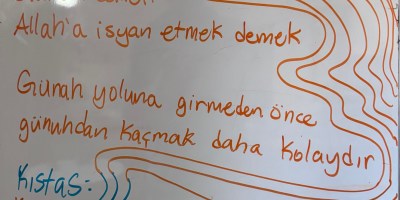 Allah'a isyan etmek demek
Günah yoluna girmeden önce
günuhdan kaçmak daha kolaydır
Kıstas: